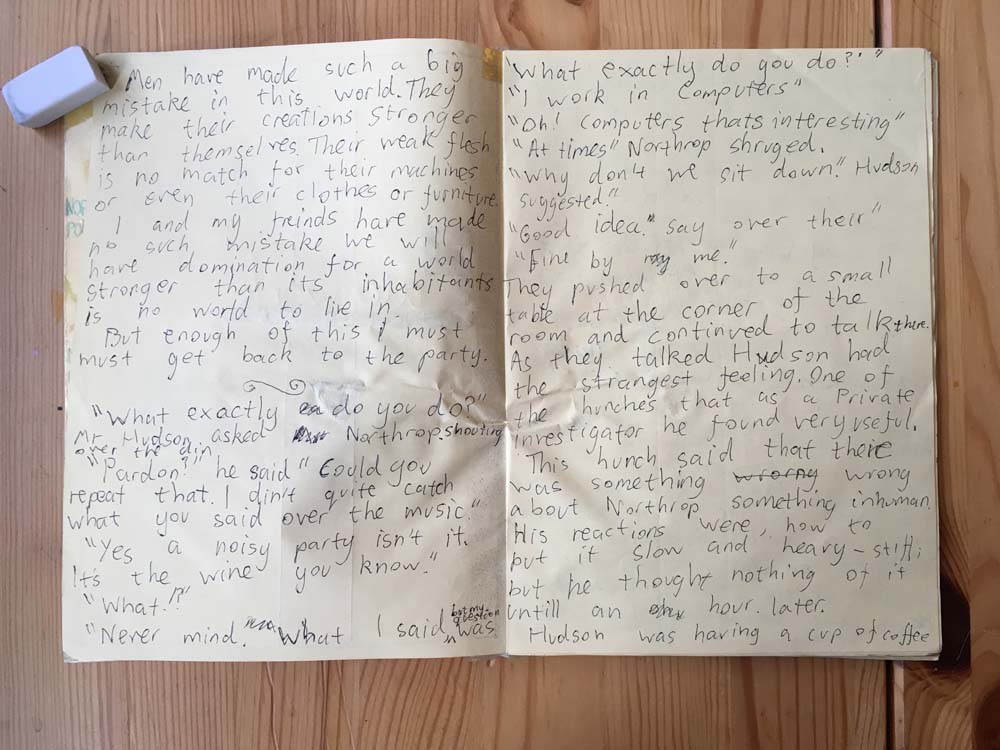 Men have made such a big
mistake in this world. They
make their creations stronger
than themselves. Their weak flesh
is no match for their machines
or even their clothes or furniture.
I and my freinds have made
no such mistake we will
have domination for a world
stronger than its inhabitants
is no world to live in.
But enough of this I must
must get back to the party.
"What exactly do you do?"
Mr Hudson asked Northrop. shouting
over the din
"Pardon?" he said "Could you
repeat that. I din't quite catch
what you said over the music."
"Yes a noisy party isn't it.
It's the wine you know."
"What!?"
"Never mind." What I said but my question was
"What exactly do you do?'"
"I work in Computers"
"Oh! computers thats interesting"
"At times" Northrop shruged.
"Why don't we sit down." Hudson
suggested."
"Good idea." say over their"
"Fine by me."
They pushed over to a small
table at the corner of the
room and continued to talk there.
As they talked Hudson had
the strangest feeling. One of
the hunches that as a Private
investigator he found very useful.
This hunch said that there
was something wrorng wrong
about Northrop something inhuman.
His reactions were, how to
put it slow and heavy-stiff;
but he thought nothing of it
untill an hour. later.
Hudson was having a cup of coffee